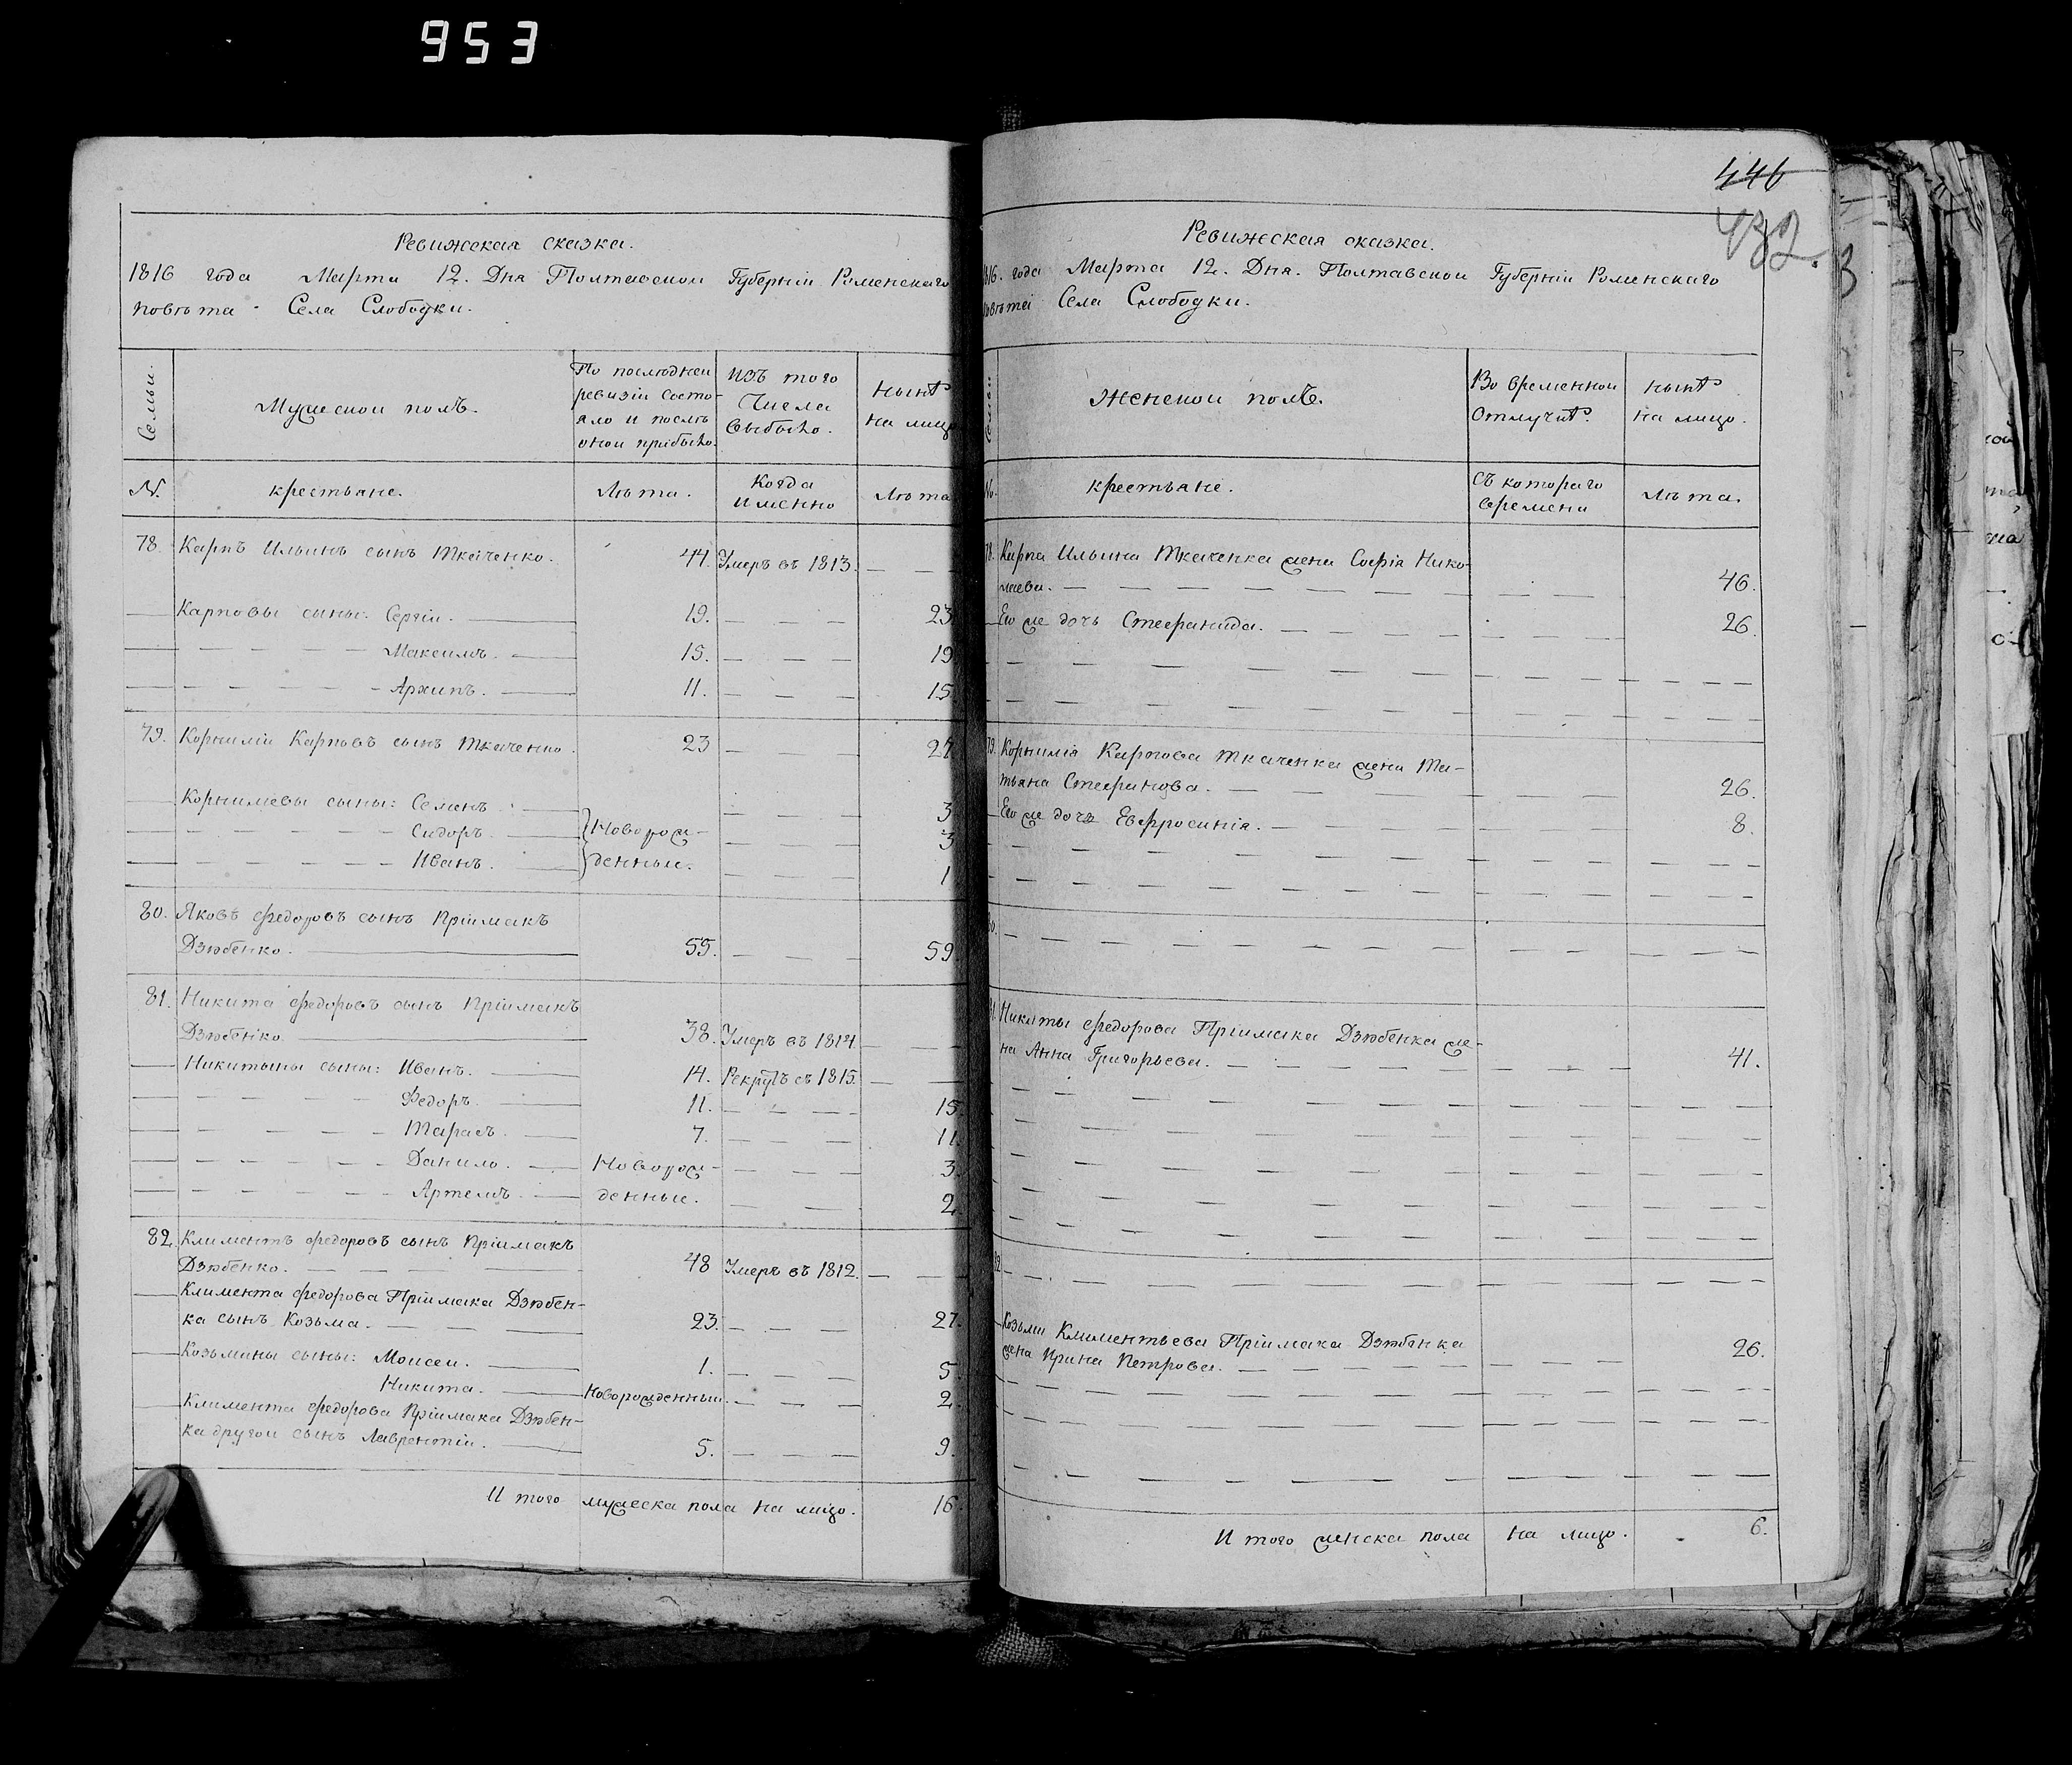 953
Ревижская сказка.
1816 года Марта 12. Дня Полтавской Губерніи Роменскаго
повѣта Села Слободки.
Семьи.
Мужеской полъ.
По последней
ревизіи состо-
яло и послѣ
оной прибыло.
Изъ того
Числа
выбыло.
Нынѣ
на лицо
№.
крестьяне.
Лѣта.
Когда
именно
Лѣта
78. Карпъ Ильинъ сынъ Ткаченко. 44. Умеръ въ 1813.
Карповы сыны: Сергій. 19. 23
Максимъ. 15. 19
Архипъ. 11. 15
79. Корнилій Карповъ сынъ Ткаченко. 23 27
Корнилевы сыны: Семенъ 3
Сидоръ. Новорож- 3
Иванъ. денные. 1
80. Яковъ Федоровъ сынъ Пріймакъ
Дзюбенко. 55. 59
81. Никита Федоровъ сынъ Пріймакъ
Дзюбенко. 38. Умеръ въ 1814
Никитины сыны: Иванъ. 14. Рекрутъ съ 1815.
Федоръ. 11. 15.
Тарасъ. 7. 11
Данило. Новорож- 3
Артемъ. денные. 2
82. Климентъ Федоровъ сынъ Пріймакъ
Дзюбенко. 48 Умеръ въ 1812.
Климента Федорова Пріймака Дзюбен-
ка сынъ Козьма. 23. 27.
Козьмины сыны: Моисей. 1. 5
Никита. Новорожденный. 2.
Климента Федорова Пріймака Дзюбен-
ка другой сынъ Лаврентій. 5. 9.
И того мужеска пола на лицо. 16
446
432.
Ревижская сказка.
1816. года Марта 12. Дня. Полтавской Губерніи Роменскаго
повѣта Села Слободки.
Семьи
Женской полъ.
Во временной
Отлучкѣ.
Нынѣ
на лицо.
№.
крестьяне.
Съ котораго
времени
Лѣта.
78. Карпа Ильина Ткаченка жена Софія Нико-
лаева. 46.
Его же дочь Стефанида. 26.
79. Корнилія Карпова Ткаченка жена Та-
тьяна Стефанова. 26.
Его же дочь Евфросинія. 8.
80.
81. Никиты Федорова Пріймака Дзюбенка же-
на Анна Григорьева. 41.
82
Козьми Климентьева Пріймака Дзюбенка
жена Ирина Петрова. 26.
И того женска пола на лицо. 6.